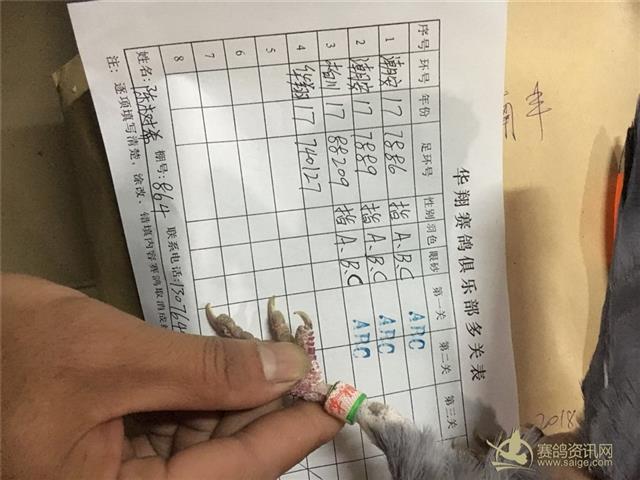 华翔赛鸽俱乐部多关表
序号 环号 年份 足环号 性别 羽色 眼砂 第一关 第二关 第三关
1 潮安 17 7886 指A、B、C ABC
2 潮安 17 7889 指A、B、C ABC
3 17 88209 指A、B、C ABC
4 华翔 17 740127
5
6
7
8
姓名: 棚号:864 联系电话:130764
注:逐项填写清楚,涂改、错填内容赛鸽取消成绩
2018
赛鸽资讯网
www.saige.com